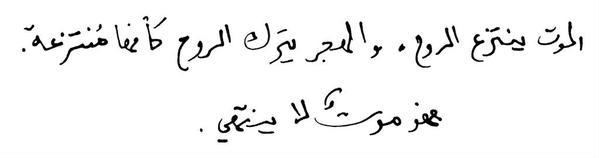 الموت ينتزع الروح، والهجر يترك الروح كأنها مُنتزعة.
فهو موتٌ لا ينتهي.